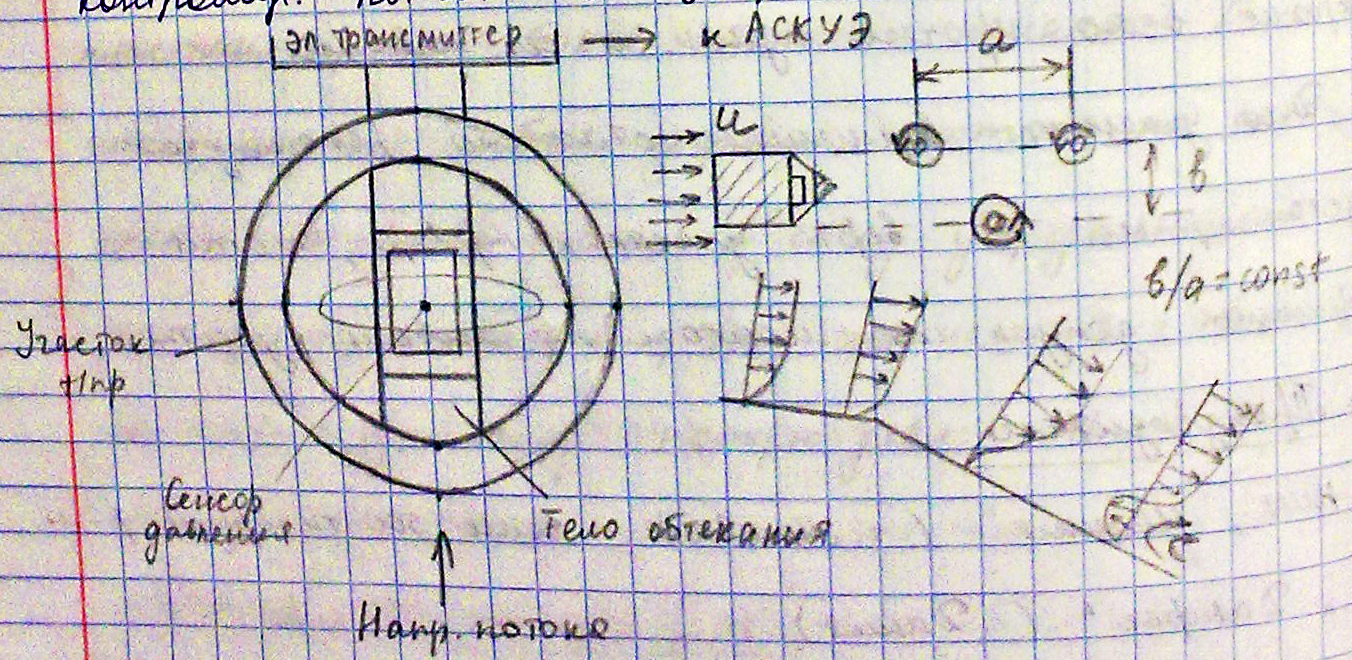 контролир.
эл.трансмиттер → к АСКУЭ
a
u
в
в/а = const
Участок
Сенсор
давления
Тело обтекания
Напр. потока